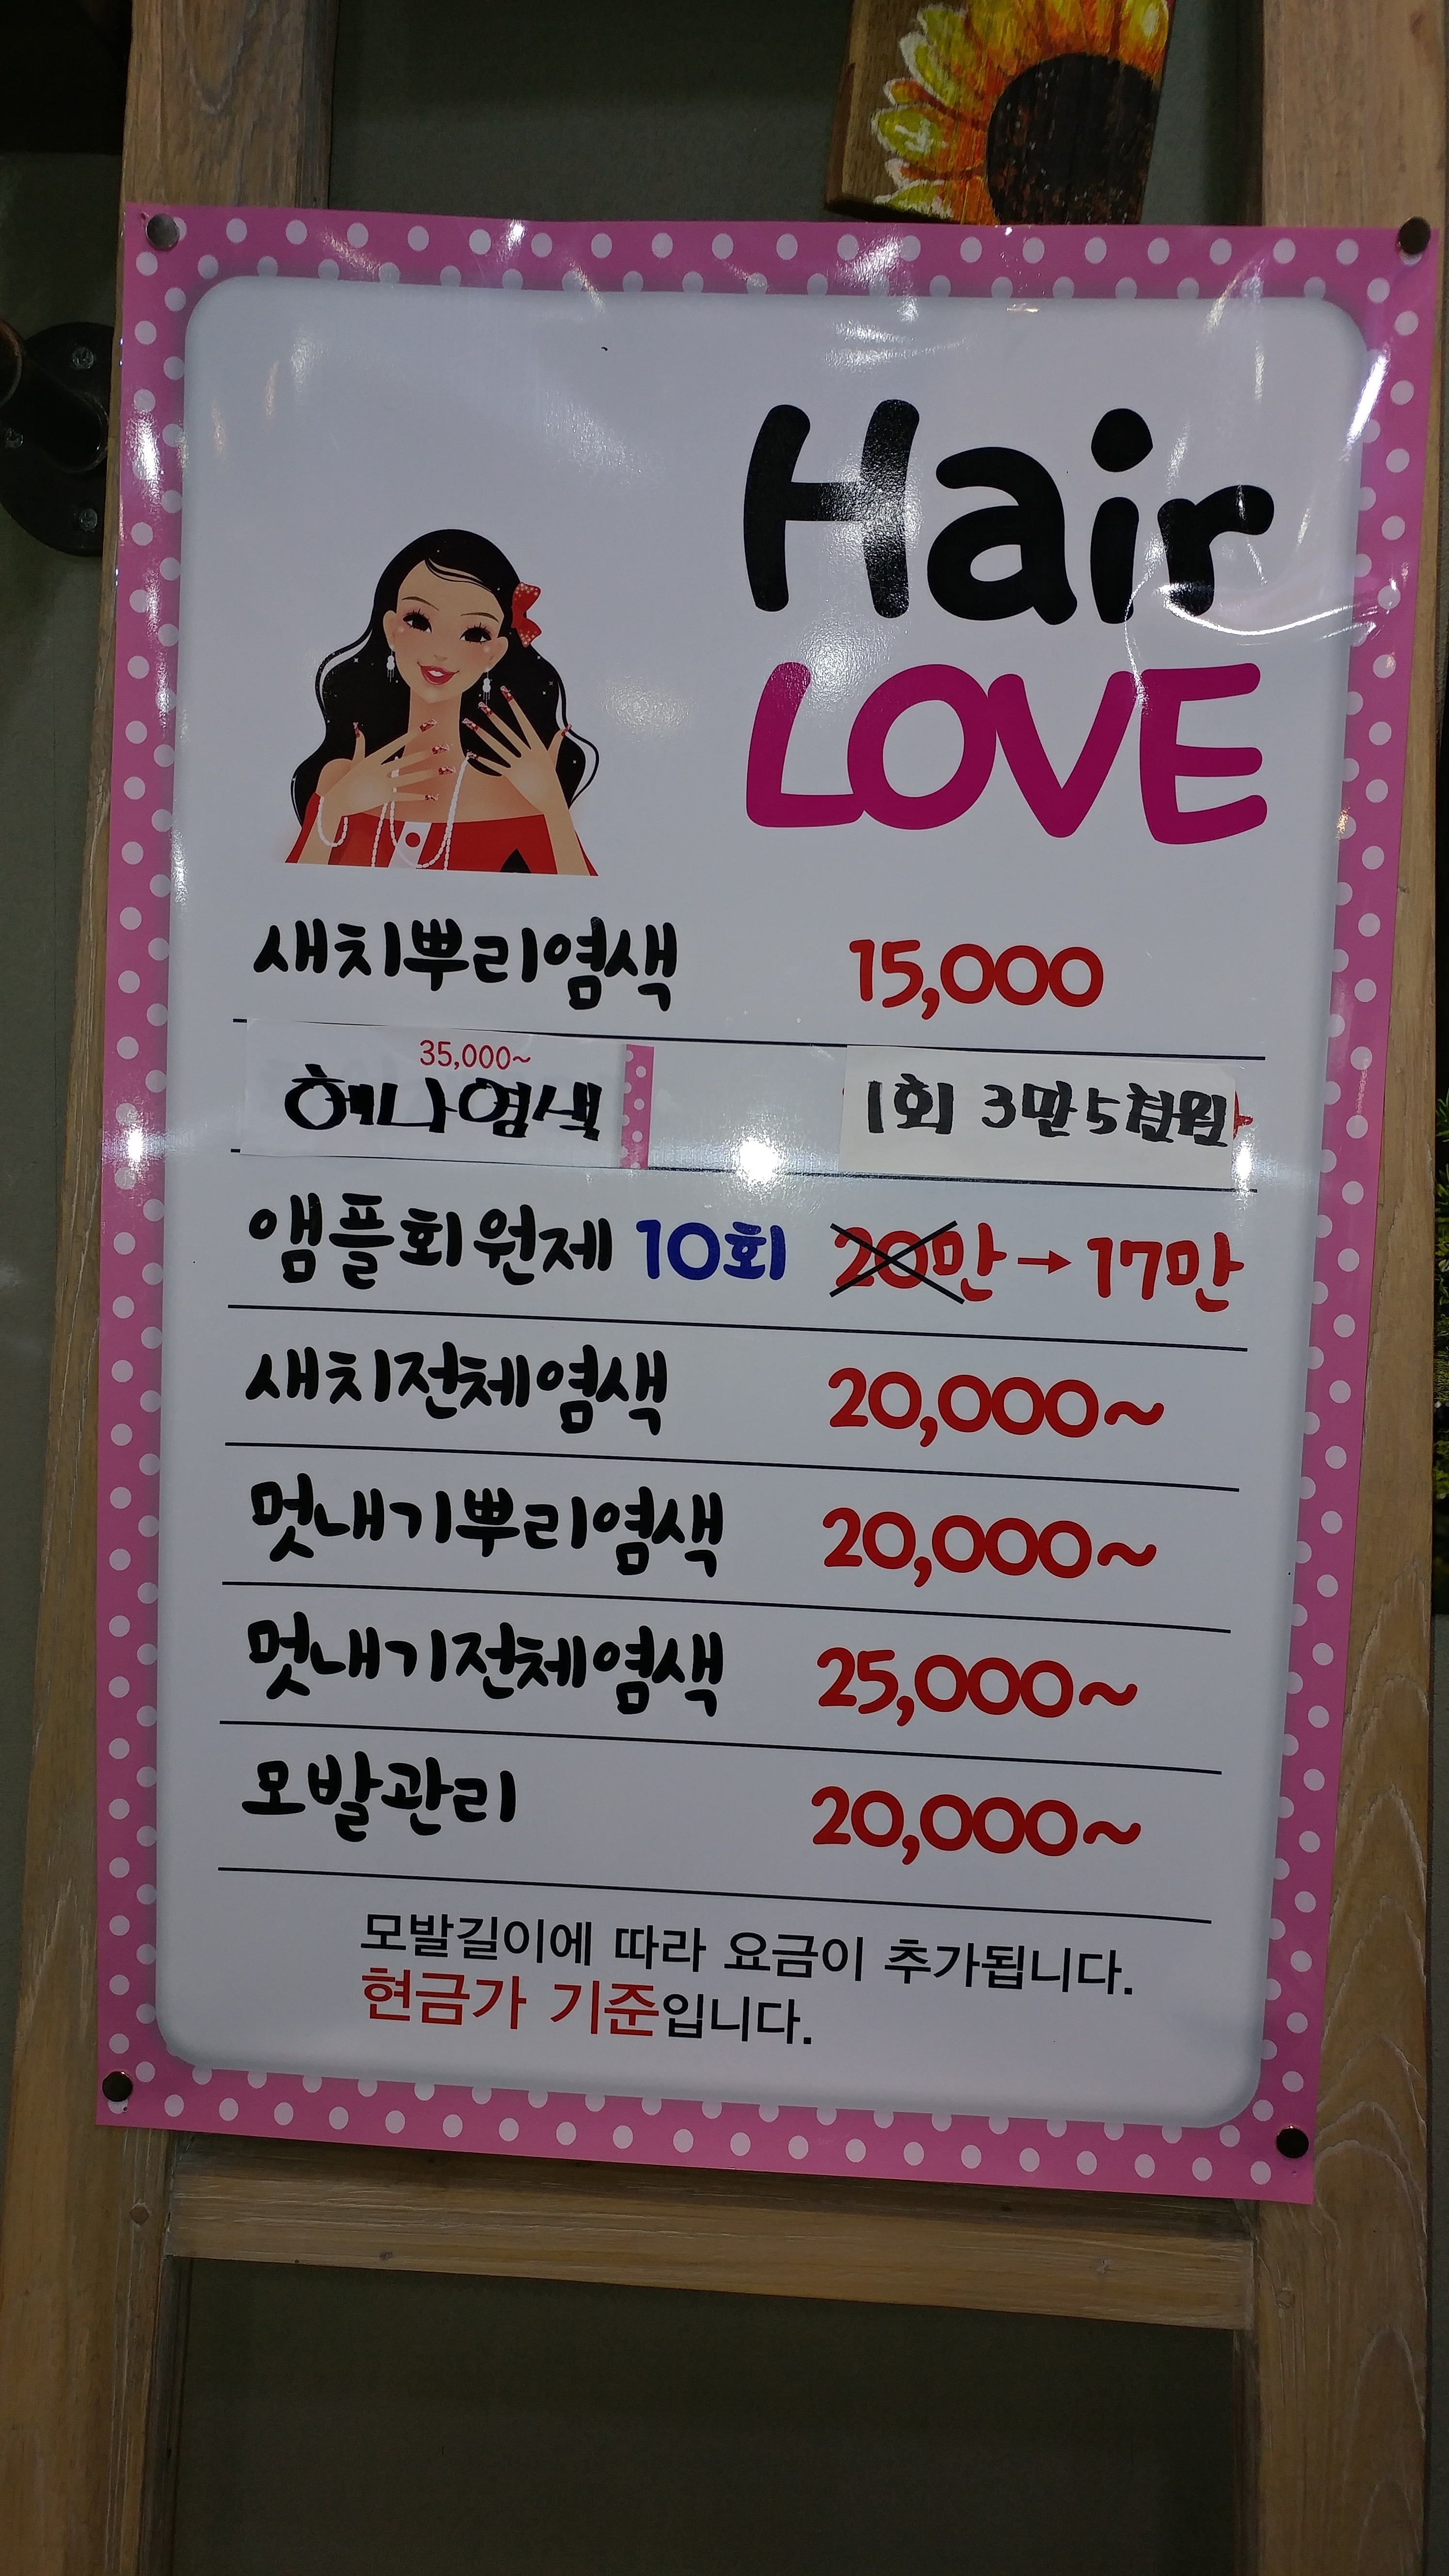 Hair
LOVE
새치뿌리염색 15,000
35,000~
헤나염색 1회 3만5천원
앰플회원제 10회 20만→17만
새치전체염색 20,000~
멋내기뿌리염색 20,000~
멋내기전체염색 25,000~
모발관리 20,000~
모발길이에 따라 요금이 추가됩니다.
현금가 기준입니다.